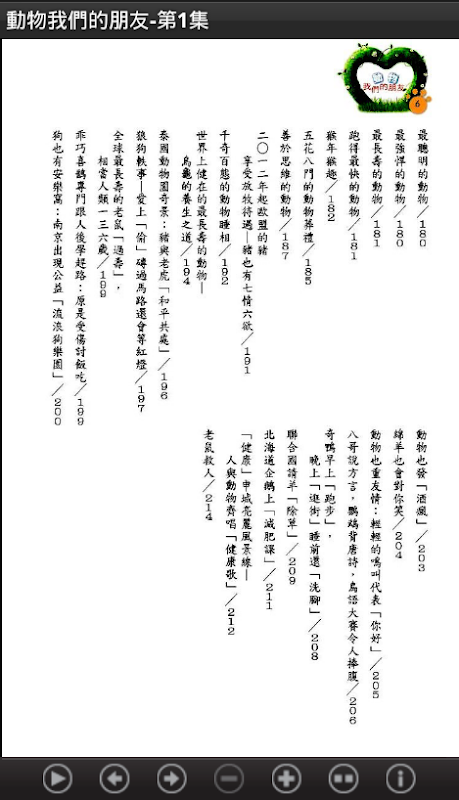 動物我們的朋友-第1集
動物
我們的朋友
6
最聰明的動物／180
最強悍的動物／180
最長壽的動物／181
跑得最快的動物／181
猴年猴趣／182
五花八門的動物葬禮／185
善於思維的動物／187
二〇一二年起歐盟的豬
享受放牧待遇—豬也有七情六欲／191
千奇百態的動物睡相／192
世界上健在的最長壽的動物—
烏龜的養生之道／194
泰國動物園奇景：豬與老虎「和平共處」／196
狼狗軼事—愛上「偷」磚過馬路還會等紅燈／197
全球最長壽的老鼠「過壽」，
相當人類一三六歲／199
乖巧喜鵲專門跟人後學趕路：原是受傷討飯吃／199
狗也有安樂窩：南京出現公益「流浪狗樂園」／200
動物也發「酒瘋」／203
綿羊也會對你笑／204
動物也重友情：輕輕的鳴叫代表「你好」／205
八哥說方言，鸚鵡背唐詩，鳥語大賽令人捧腹／206
奇鴨早上「跑步」，
晚上「逛街」睡前還「洗腳」／208
聯合國請羊「除草」／209
北海道企鵝上「減肥課」／211
「健康」申城亮麗風景線—
人與動物齊唱「健康歌」／212
老鼠救人／214